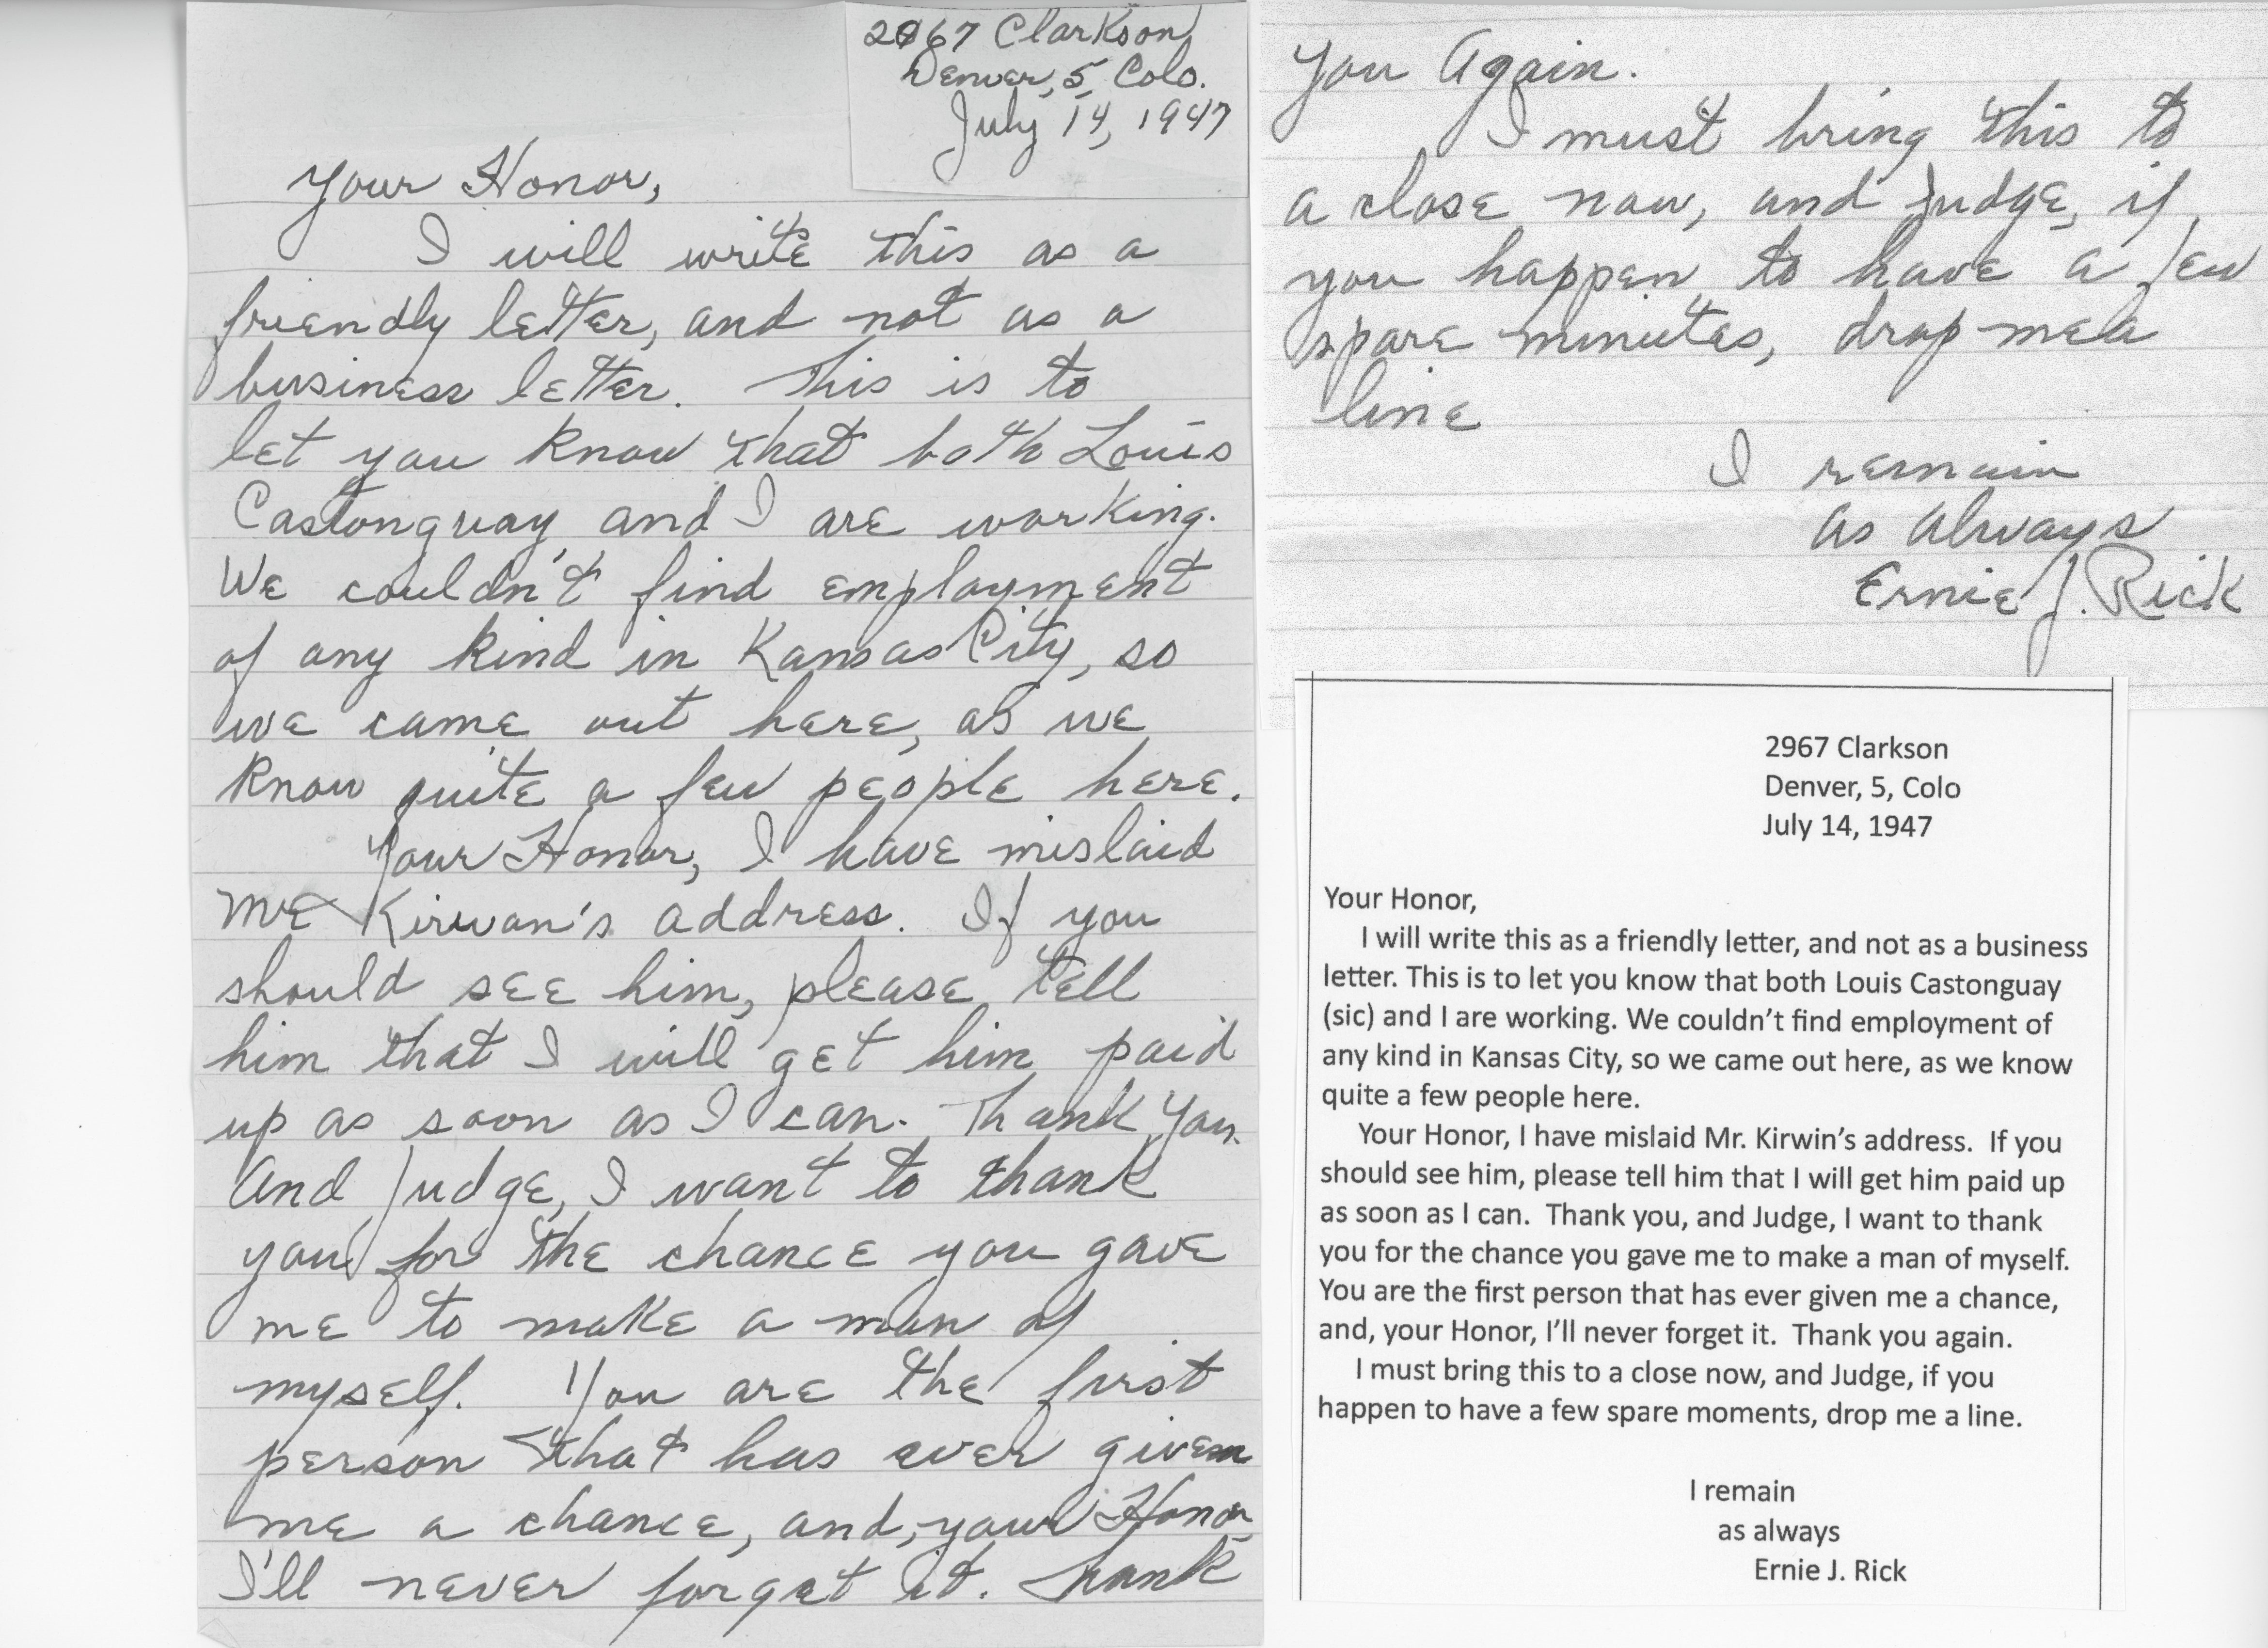 2967 Clarkson
Denver, 5, Colo.
July 14, 1947
Your Honor,
I will write this as a
friendly letter, and not as a
business letter. This is to
let you know that both Louis
Castonguay and I are working.
We couldn't find employment
of any kind in Kansas City, so
we came out here, as we
know quite a few people here.
Your Honor, I have mislaid
Mr Kirwan's address. If you
should see him, please tell
him that I will get him paid
up as soon as I can. Thank You.
And Judge, I want to thank
you for the chance you gave
me to make a man of
myself. You are the first
person that has ever given
me a chance, and, your Honor
I'll never forget it. Thank
You Again.
I must bring this to
a close now, and Judge, if
you happen to have a few
spare minutes, drop me a
line
I remain
as always
Ernie J. Rick
2967 Clarkson
Denver, 5, Colo
July 14, 1947
Your Honor,
I will write this as a friendly letter, and not as a business
letter. This is to let you know that both Louis Castonguay
(sic) and I are working. We couldn't find employment of
any kind in Kansas City, so we came out here, as we know
quite a few people here.
Your Honor, I have mislaid Mr. Kirwin's address. If you
should see him, please tell him that I will get him paid up
as soon as I can. Thank you, and Judge, I want to thank
you for the chance you gave me to make a man of myself.
You are the first person that has ever given me a chance,
and, your Honor, I'll never forget it. Thank you again.
I must bring this to a close now, and Judge, if you
happen to have a few spare moments, drop me a line.
I remain
as always
Ernie J. Rick